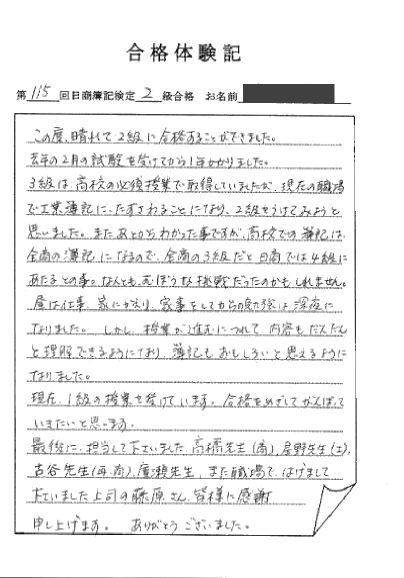 合格体験記
第115回日商簿記検定2級合格 お名前
この度、晴れて2級に合格することができました。
去年の2月の試験を受けてから1年かかりました。
3級は、高校の必修授業で取得していましたが、現在の職場
で工業簿記に、たずさわることになり、2級をうけてみようと
思いました。またあとからわかった事ですが、高校での簿記は、
全商の簿記になるので、全商の3級だと日商では4級に
あたるとの事。なんとも、むぼうな挑戦だったのかもしれません。
昼は仕事、家にかえり、家事をしてからの勉強は、深夜に
なりました。しかし、授業が進むにつれて内容もだんだん
と理解できるようになり、簿記もおもしろいと思えるように
なりました。
現在、1級の授業を受けています。合格をめざしてがんばって
いきたいと思います。
最後に、担当して下さいました、高橋先生(商)、星野先生(工)、
古谷先生(再・商)、廣瀬先生、また職場で、はげまして
下さいました上司の藤原さん、皆様に感謝
申し上げます。 ありがとうございました。